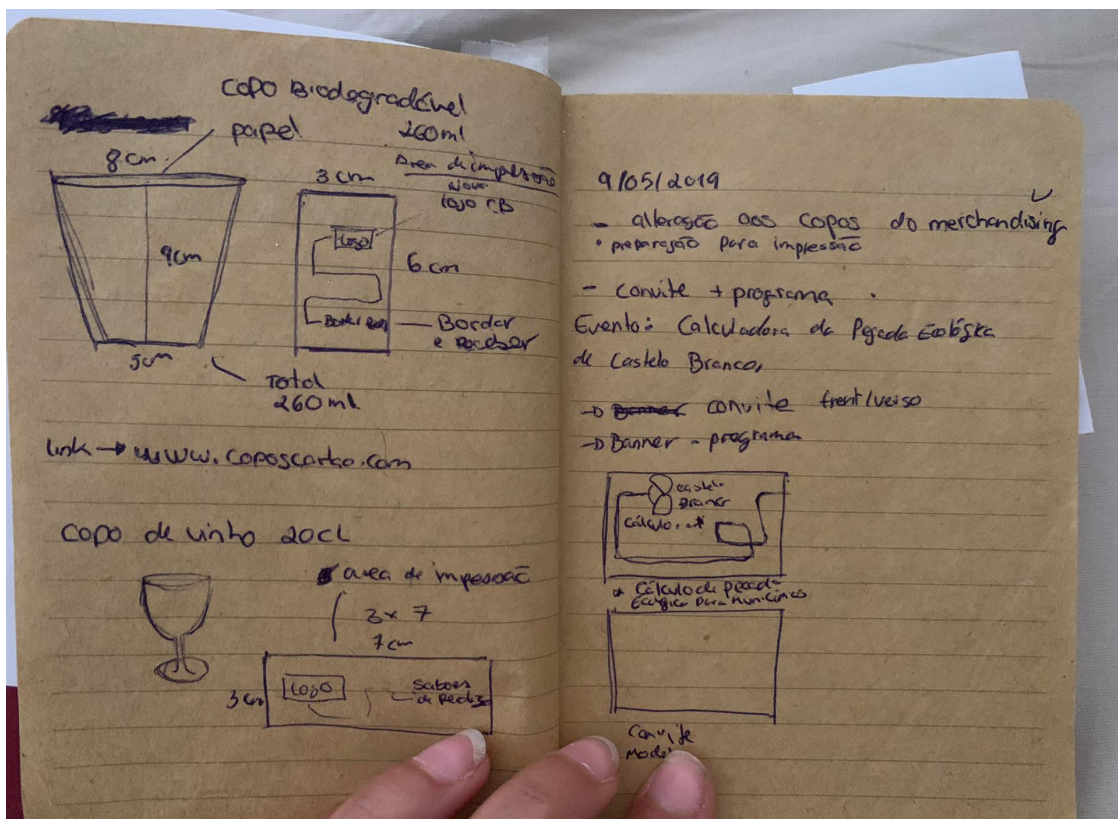 Copo Biodegradável
papel
260ml
8cm
9cm
5cm
Total
260ml.
3cm
Area de impressão
Novo
logo CB
Logo
6cm
Bordar
e receber
link → www.coposcartao.com
Copo de vinho 20cl
area de impessão
3x7
7cm
3cm
LOGO
Sabores
de Perdição
9/05/2019
- alteração aos copos do merchandising
• preparação para impressão
- Convite + programa.
Evento: Calculadora da Pegada Ecológica
de Castelo Branco,
→ convite frent/verso
→ Banner - programa
castelo
Branco
Cálculo.. *
* Cálculo da Pegada
Ecológica para Municipios
Convite